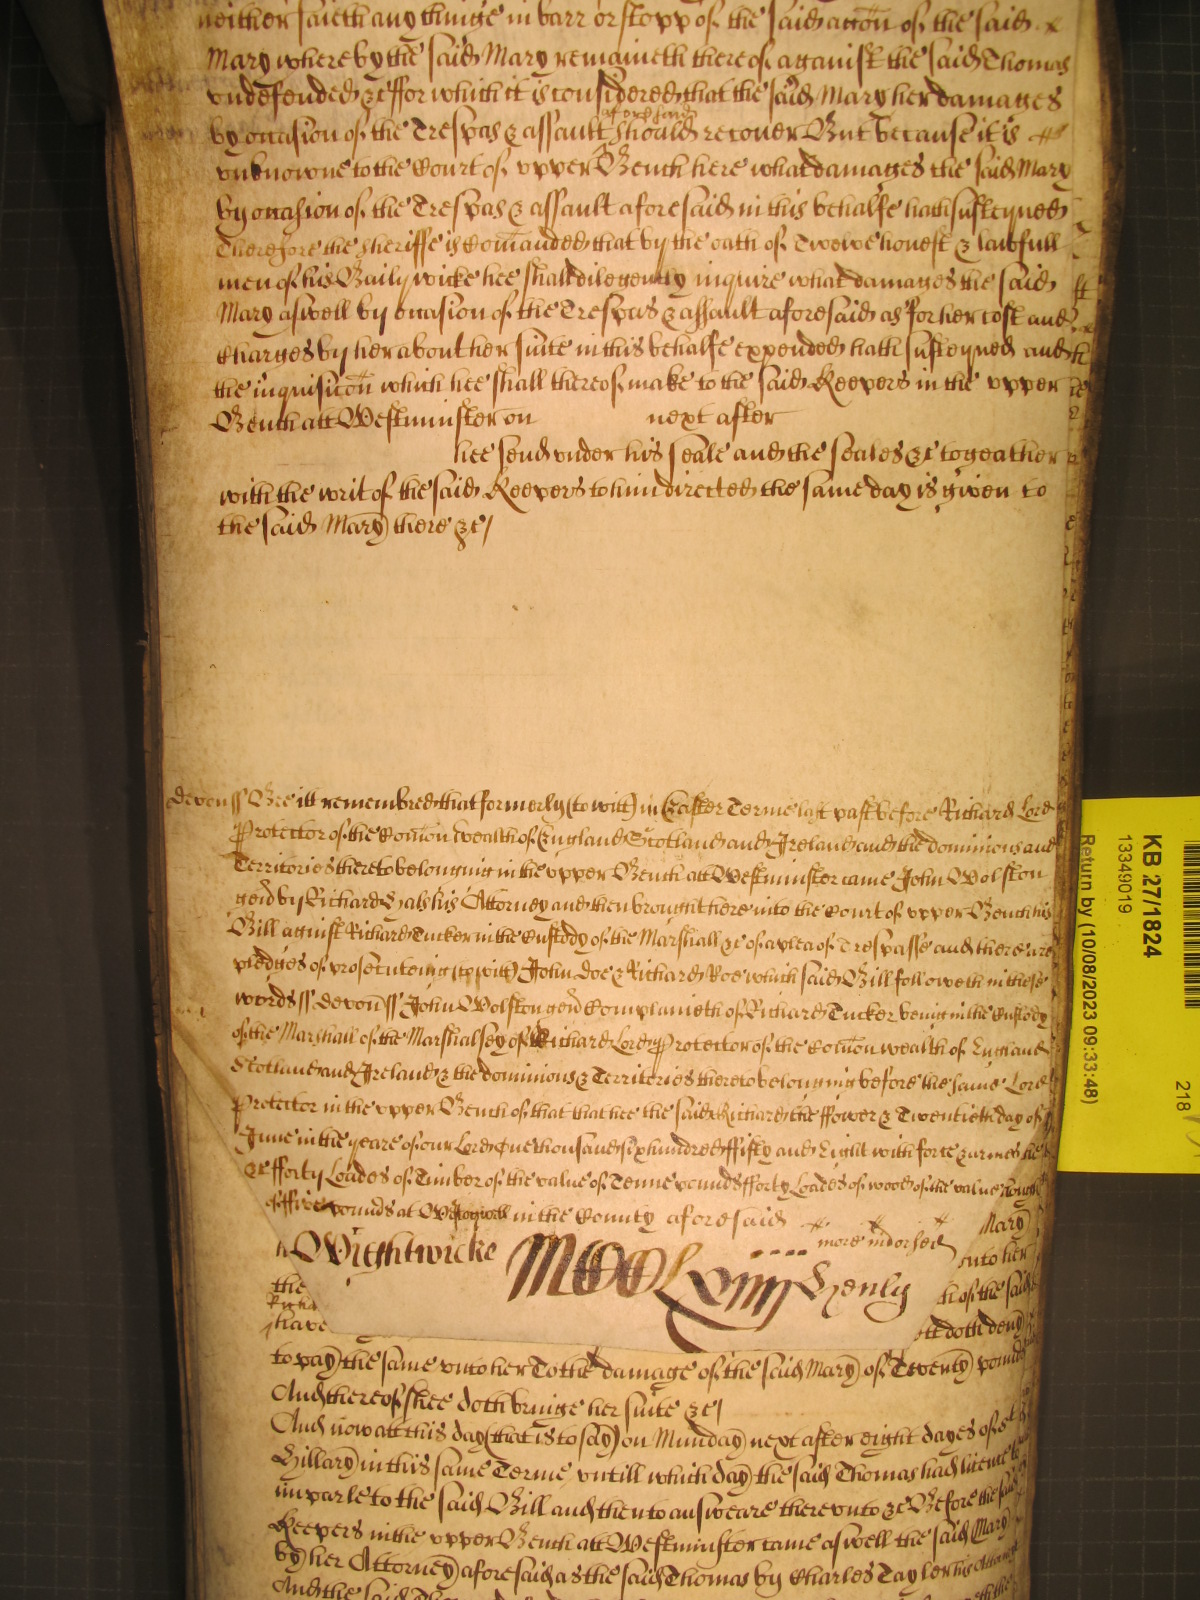 neither saieth any thinge in barr or stopp of the said accõn of the said
Mary whereby the said Mary remaineth thereof against the said Thomas
undefended &c ffor which it is considered that the said Mary her damages
by occasion of the Trespas & assault aforesaid should recover But because it is
unknowne to the Court of upper Bench here what damages the said Mary
by occasion of the Trespas & assault aforesaid in this behalfe hath susteyned
Therefore the sheriffe is Comãnded that by the oath of Twelve honest & lawfull
men of his Bailywicke hee shall diligently inquire what damages the said
Mary aswell by occasion of the Trespas & assault aforesaid as for her cost and
Charges by her about her suite in this behalfe expended hath susteyned and
the inquisicõn which hee shall thereof make to the said Keepers in the upper
Bench att Westminster on next after
hee send under his seale and the seales &c togeather
with the writ of the said Keepers to him directed the same day is given to
the said Mary there &c/
Devon ss Bee itt remembred that formerly (to witt) in Easter Terme last past before Richard Lord
Protector of the Com̃on wealth of England Scotland and Ireland and the dominions and
Territories thereto belonging in the upper Bench att Westminster came John Wolston
gend by Richard his Attorney and then brought here into the Court of upper Bench his
Bill against Richard Tucker in the Custody of the Marshall &c of a plea of Trespasse and there are
pledges of prosecuteing (to witt) John Doe & Richard Roe which said Bill followeth in these
words ss Devon ss John Wolston gend Complaineth of Richard Tucker being in the Custody
of the Marshall of the Marshalsey of Richard Lord Protector of the Com̃on wealth of England
Scotland and Ireland & the dominions & Territories thereto belonging before the same Lord
Protector in the upper Bench of that that hee the said Richard the ffower & Twentieth day of
June in the yeare of our Lord One thousand six hundred ffifty and Eight with force & armes the
&c fforty Loades of Timber of the value of Tenne pounds fforty Loades of wood of the value
of ffive pounds at in the County aforesaid
more indorsed
Mary
unto her
Wightwicke MDCLviij Henly
the
h of the said
Richa
have
ett doth deny
to pay the same unto her To the damage of the said Mary of Twenty pounds
And thereof shee doth bringe her suite &c/
And now att this day (that is to say) on Munday next after eight dayes of st
Hillary in this same Terme untill which day the said Thomas had licence to
imparle to the said Bill and then to answeare thereunto &c Before the said
Keepers in the upper Bench att Westminster came aswell the said Mary
by her Attorney aforesaid as the said Thomas by Charles Tayler his Attorney
And the said
KB 27/1824
13349019
Return by (10/08/2023 09:33:48)
218